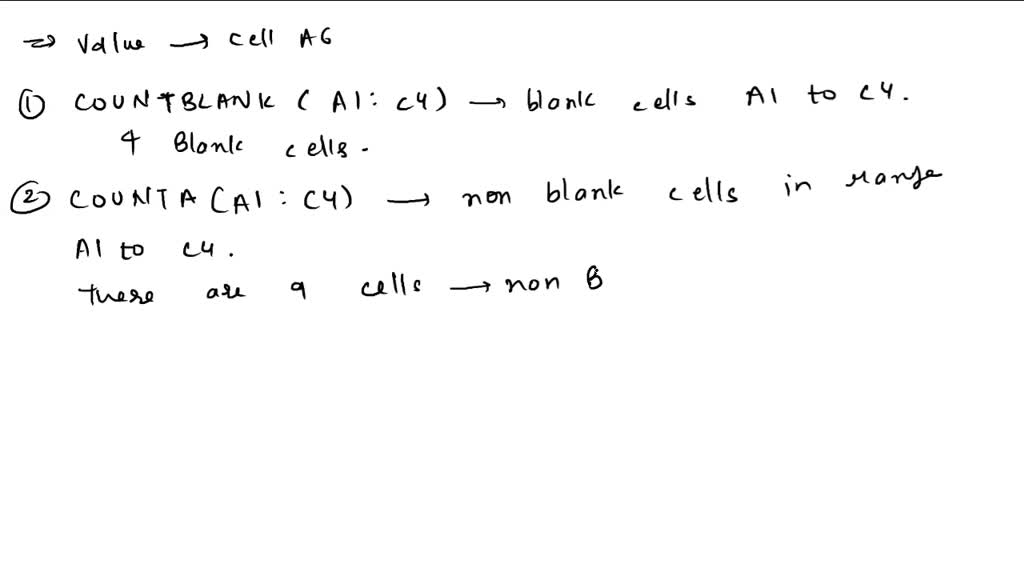 ⇒ Value → cell A6
① COUNTBLANK (A1:C4) → blank cells A1 to C4.
4 Blank cells.
② COUNTA (A1:C4) → non blank cells in range
A1 to C4.
there are 9 cells → non B